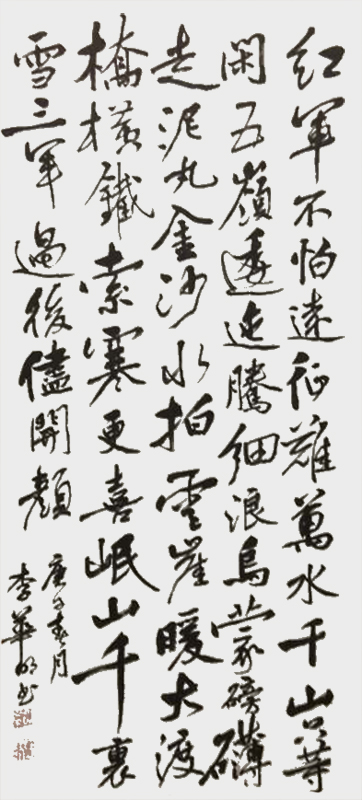 红軍不怕遠征難萬水千山只等
閑五嶺逶迤騰細浪烏蒙磅礴
走泥丸金沙水拍雲崖暖大渡
橋橫鐵索寒更喜岷山千裏
雪三軍過後儘開顏
庚子春月
李華明书